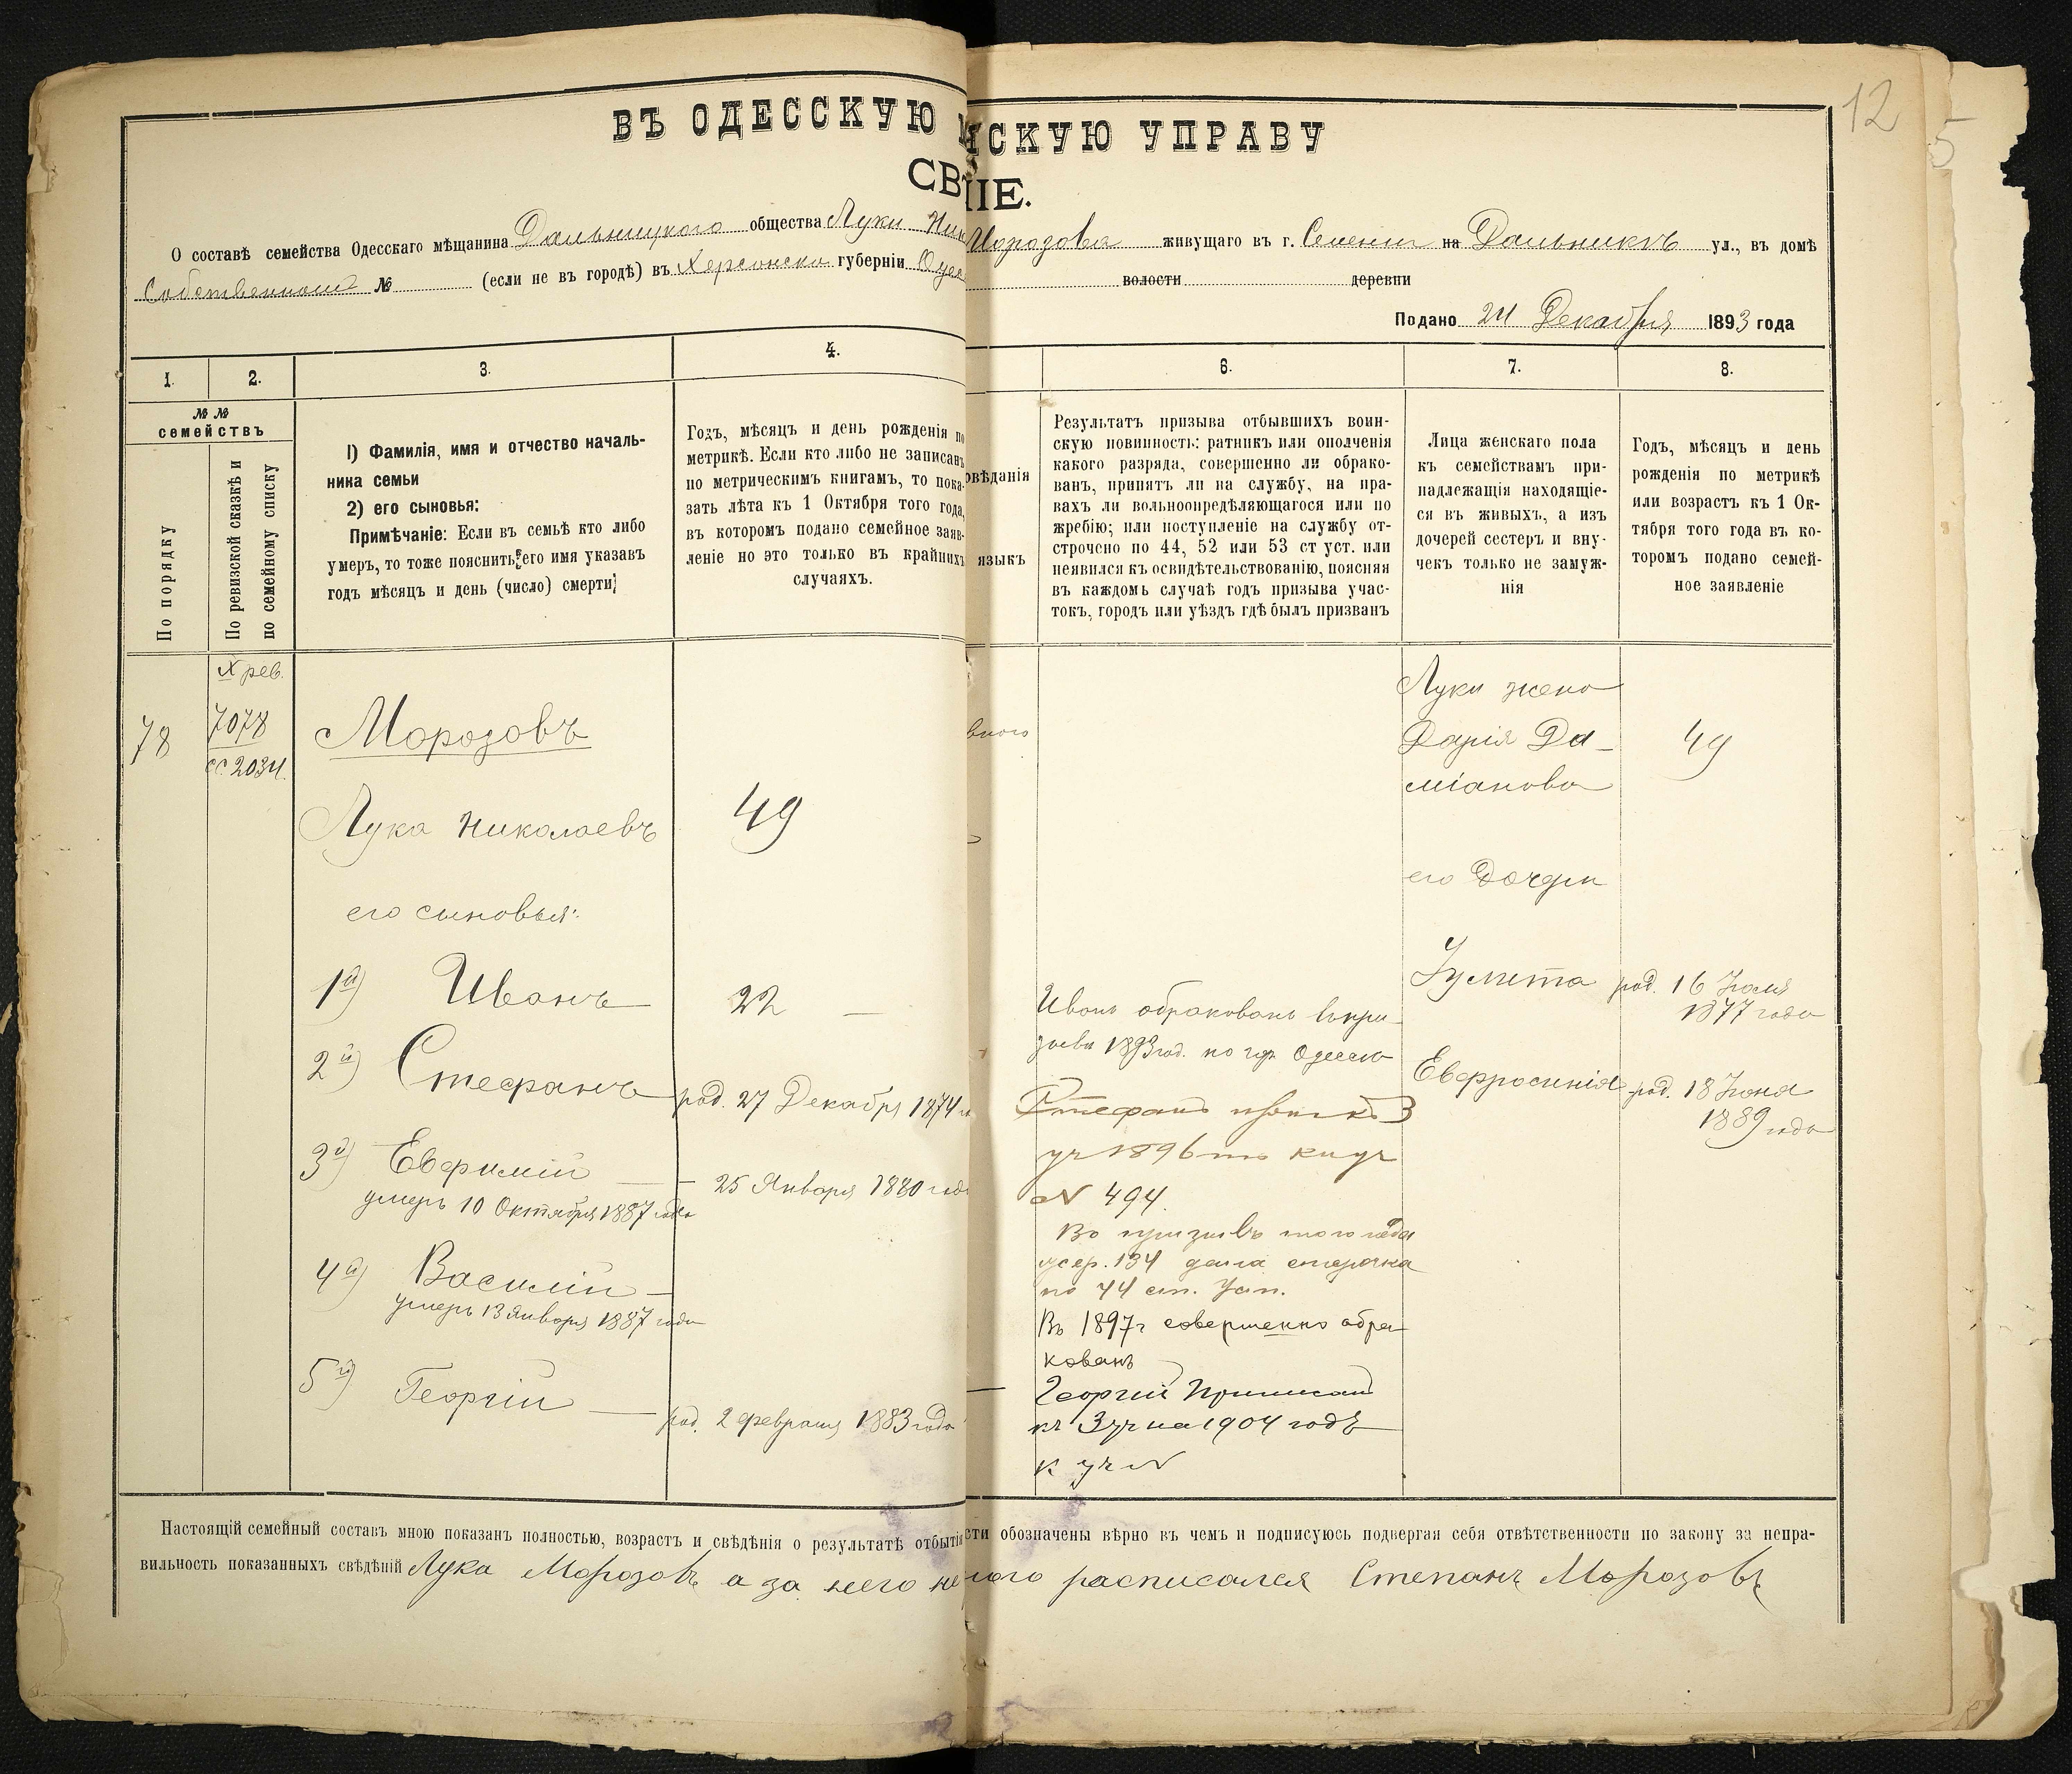 12
5
ВЪ ОДЕССКУЮ НСКУЮ УПРАВУ
СВ НІЕ.
О составѣ семейства Одесскаго мѣщанина Дальницкаго общества Луки Ник Морозова живущаго въ г. Селеніи на Дальникѣ ул., въ домѣ
Собственномъ № (если не въ городѣ) въ Херсонской губерніи Одес волости деревни
Подано 24 Декабря 1893 года
1. 2. 3. 4. 6. 7. 8.
№ №
семействъ
По порядку
По ревизской сказкѣ и
по семейному списку
1) Фамилія, имя и отчество началь-
ника семьи
2) его сыновья:
Примѣчаніе: Если въ семьѣ кто либо
умеръ, то тоже пояснить, его имя указавъ
годъ мѣсяцъ и день (число) смерти,
Годъ, мѣсяцъ и день рожденія по
метрикѣ. Если кто либо не записанъ
по метрическимъ книгамъ, то пока-
зать лѣта къ 1 Октября того года,
въ которомъ подано семейное заяв-
леніе но это только въ крайнихъ
случаяхъ.
овѣданія
языкъ
Результатъ призыва отбывшихъ воин-
скую повинность: ратникъ или ополченія
какого разряда, совершенно ли обрако-
ванъ, принятъ ли на службу, на пра-
вахъ ли вольноопредѣляющагося или по
жребію; или поступленіе на службу от-
строчено по 44, 52 или 53 ст уст. или
неявился къ освидѣтельствованію, поясняя
въ каждомъ случаѣ годъ призыва учас-
токъ, городъ или уѣздъ гдѣ былъ призванъ
Лица женскаго пола
къ семействамъ при-
надлежащія находящіе-
ся въ живыхъ, а изъ
дочерей сестеръ и вну-
чекъ только не замуж-
нія
Годъ, мѣсяцъ и день
рожденія по метрикѣ
или возрастъ къ 1 Ок-
тября того года въ ко-
торомъ подано семей-
ное заявленіе
X рев.
78
7078
сс 2034.
Морозовъ
Лука Николаевъ
49
его сыновья:
1й) Иванъ
22
2й) Стефанъ
род. 27 Декабря 1874
3й) Евфимій
25 Января 1880 года
умеръ 10 Октября 1887 года
4й) Василій
умеръ 13 Января 1887 года
5й) Георгій
род. 2 февраля 1883 года
вного
Иванъ обракованъ въ при-
зывъ 1893 год. по гор. Одессѣ
Стефанъ 3
уч 1896 кн уч
N 494.
Во призывъ того года
жер. 134 дана отсрочка
по 44 ст. Уст.
Въ 1897 г совершенно обра-
кованъ
Георгій Приписанъ
къ 3 уч на 1904 годъ
к уч N
Луки жена
Дарія Да-
міанова
49
его Дочери
Іулита
род. 16 Іюля
1877 года
Евфросинія
род. 18 Іюня
1889 года
Настоящій семейный составъ мною показанъ полностью, возрастъ и свѣдѣнія о результатѣ отбытія сти обозначены вѣрно въ чемъ и подписуюсь подвергая себя отвѣтственности по закону за непра-
вильность показанныхъ свѣдѣній Лука Морозовъ а за него не наго расписался Степанъ Морозовъ